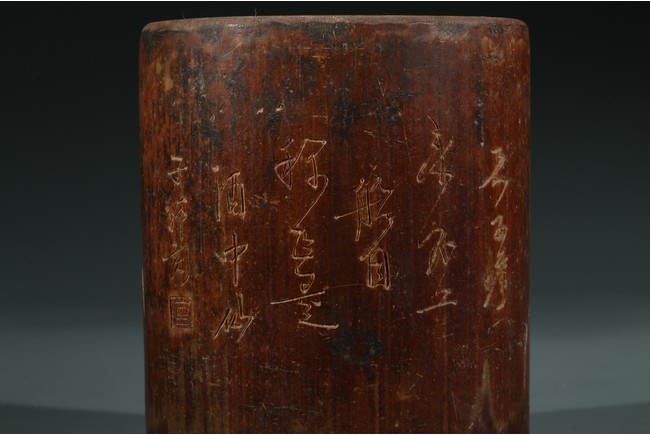 天子呼
来不上
船自
称臣是
酒中仙